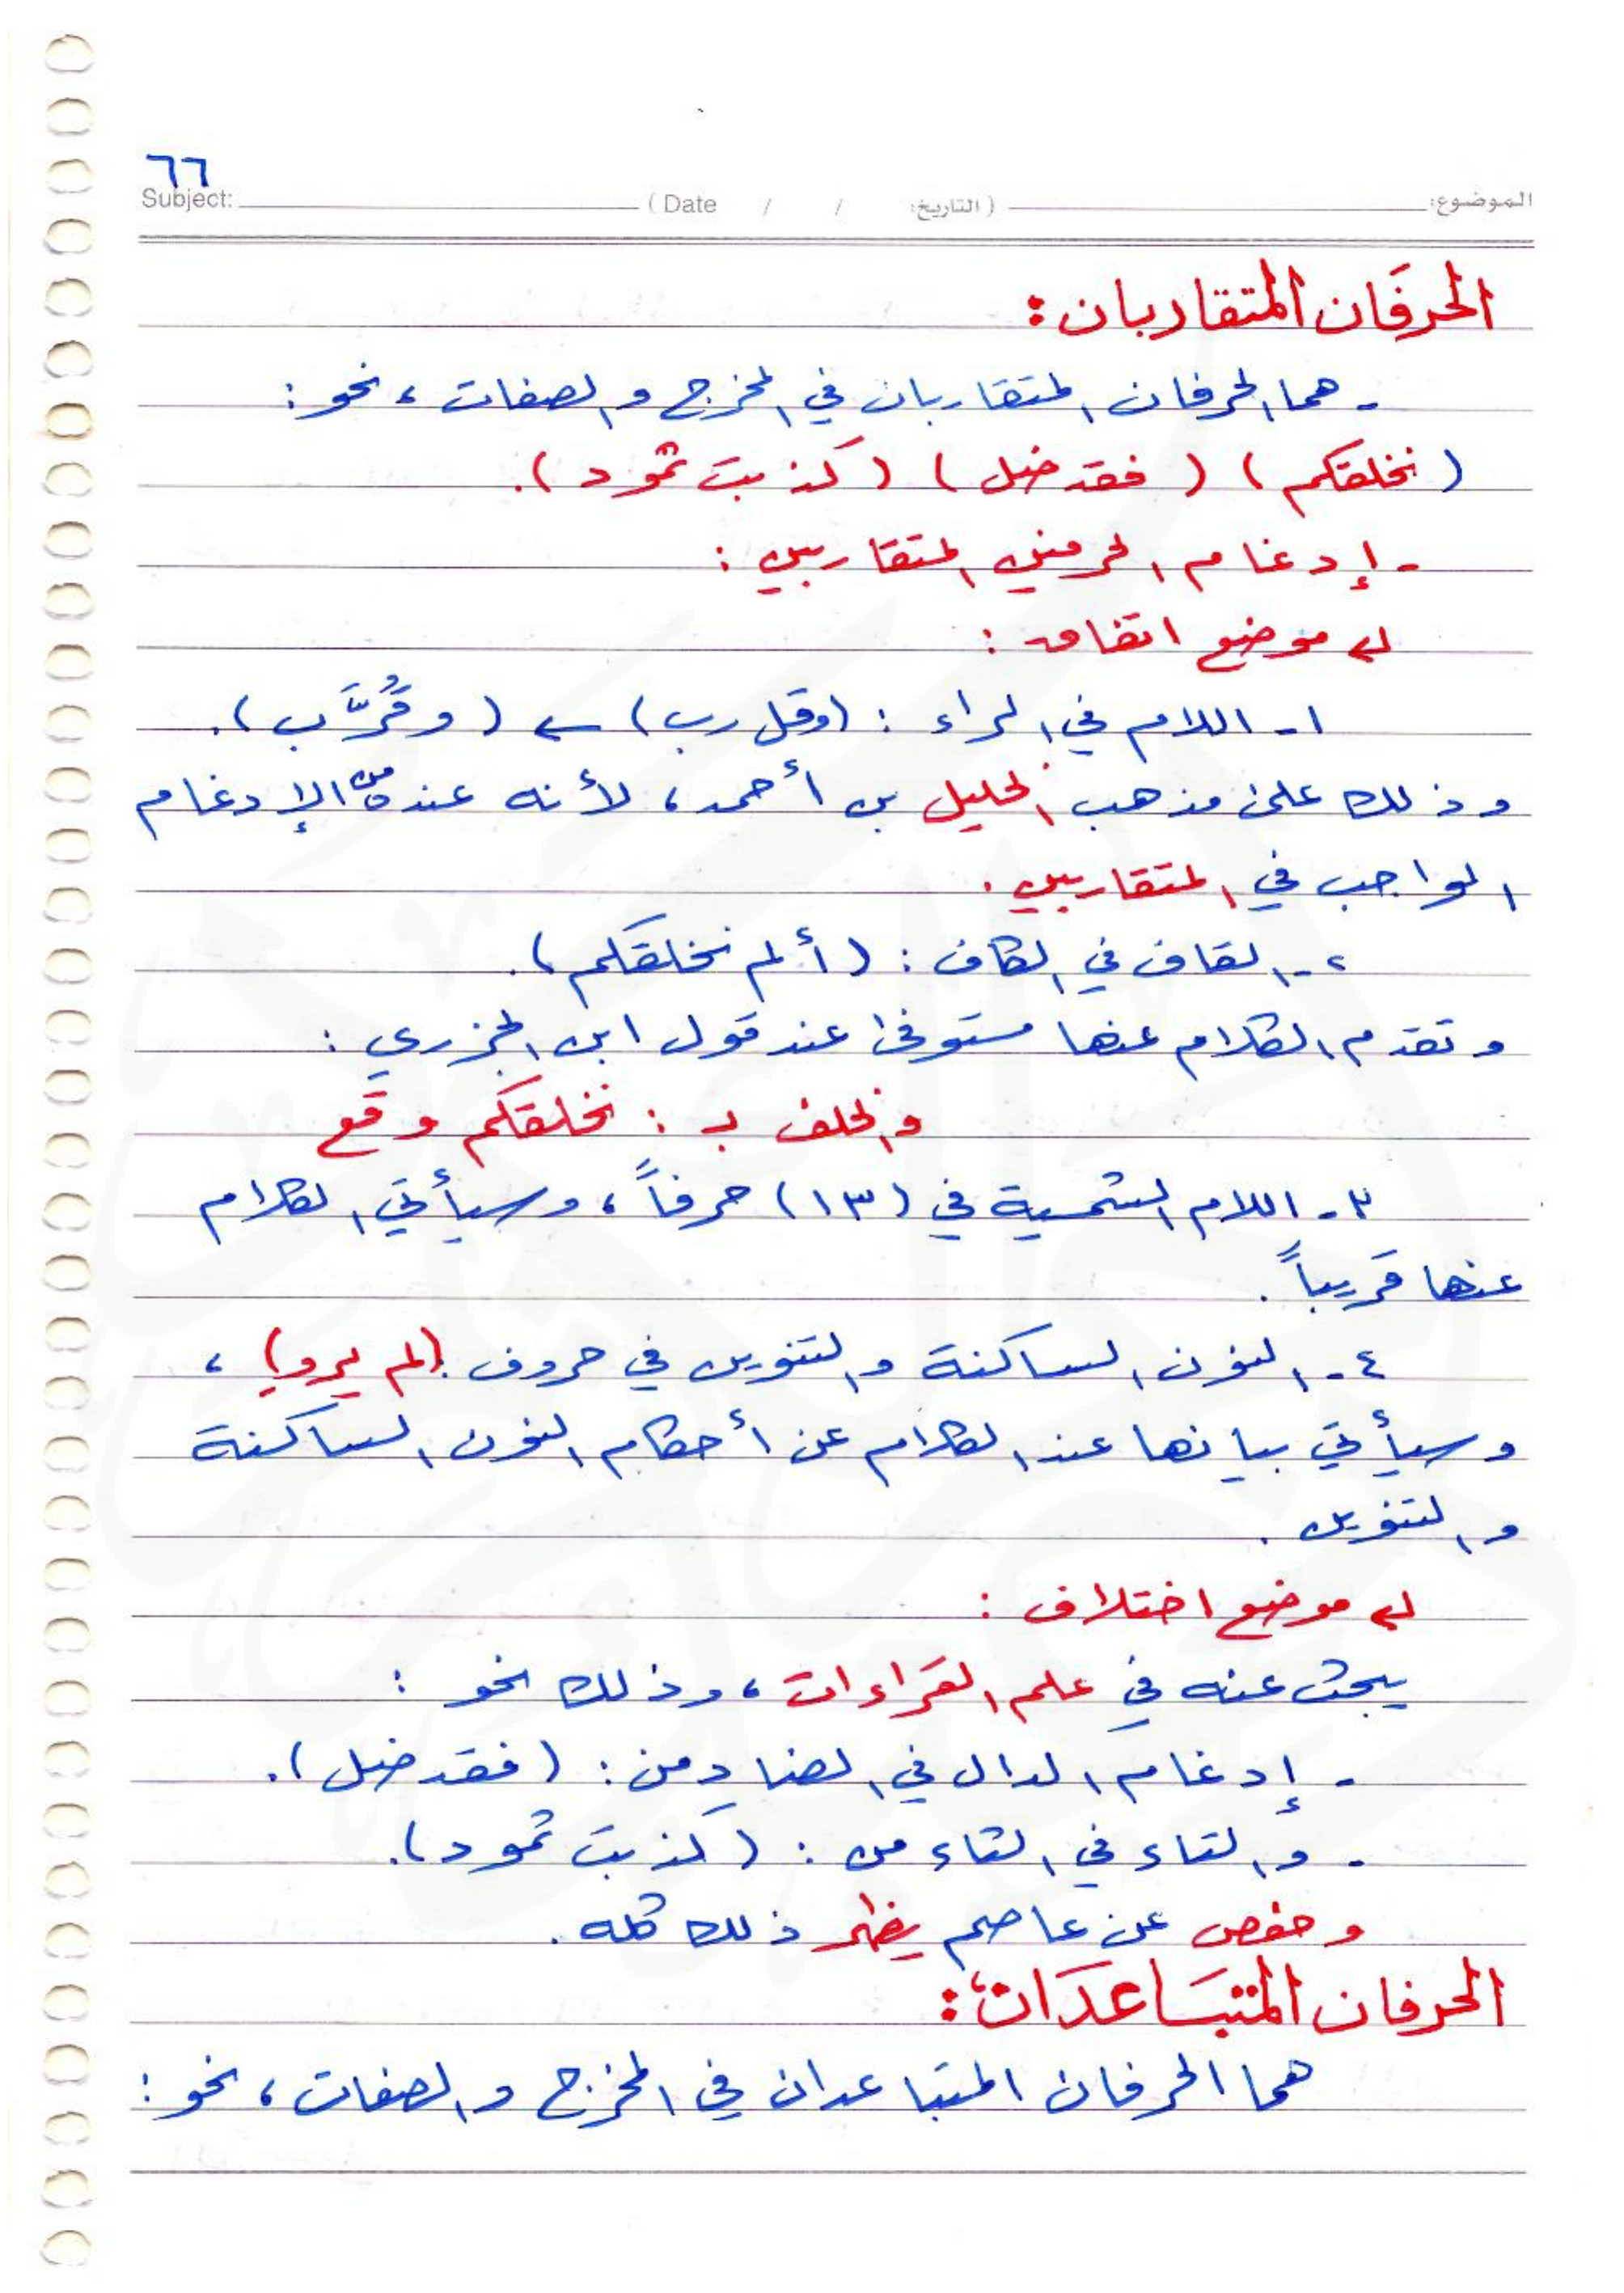 ٦٦
Subject: ( Date / / التاريخ: ) الموضوع:
الحرفان المتقاربان :
- هما الحرفان المتقاربان في المخرج والصفات ، نحو :
( نخلقكم ) ( فقد ضل ) ( كذبت ثمود ) .
- إدغام الحرفين المتقاربين :
موضع اتفاق :
١ - اللام في الراء : ( وقل رب ) ← ( وقُرَّب ) .
وذلك على مذهب الخليل بن أحمد ، لأنه عنده من الإدغام
الواجب في المتقاربين .
٢ - القاف في الكاف : ( ألم نخلقكم ) .
وتقدم الكلام عنها مستوفى عند قول ابن الجزري :
والخلف بـ : نخلقكم وقع
٣ - اللام الشمسية في ( ١٣ ) حرفاً ، وسيأتي الكلام
عنها قريباً .
٤ - النون الساكنة والتنوين في حروف : ( لم يرو ) ،
وسيأتي بيانها عند الكلام عن أحكام النون الساكنة
والتنوين .
موضع اختلاف :
يبحث عنه في علم القراءات ، وذلك نحو :
- إدغام الدال في الضاد من : ( فقد ضل ) .
- والتاء في الثاء من : ( كذبت ثمود ) .
وحفص عن عاصم يظهر ذلك كله .
الحرفان المتبَاعدَان :
هما الحرفان المتباعدان في المخرج والصفات ، نحو :